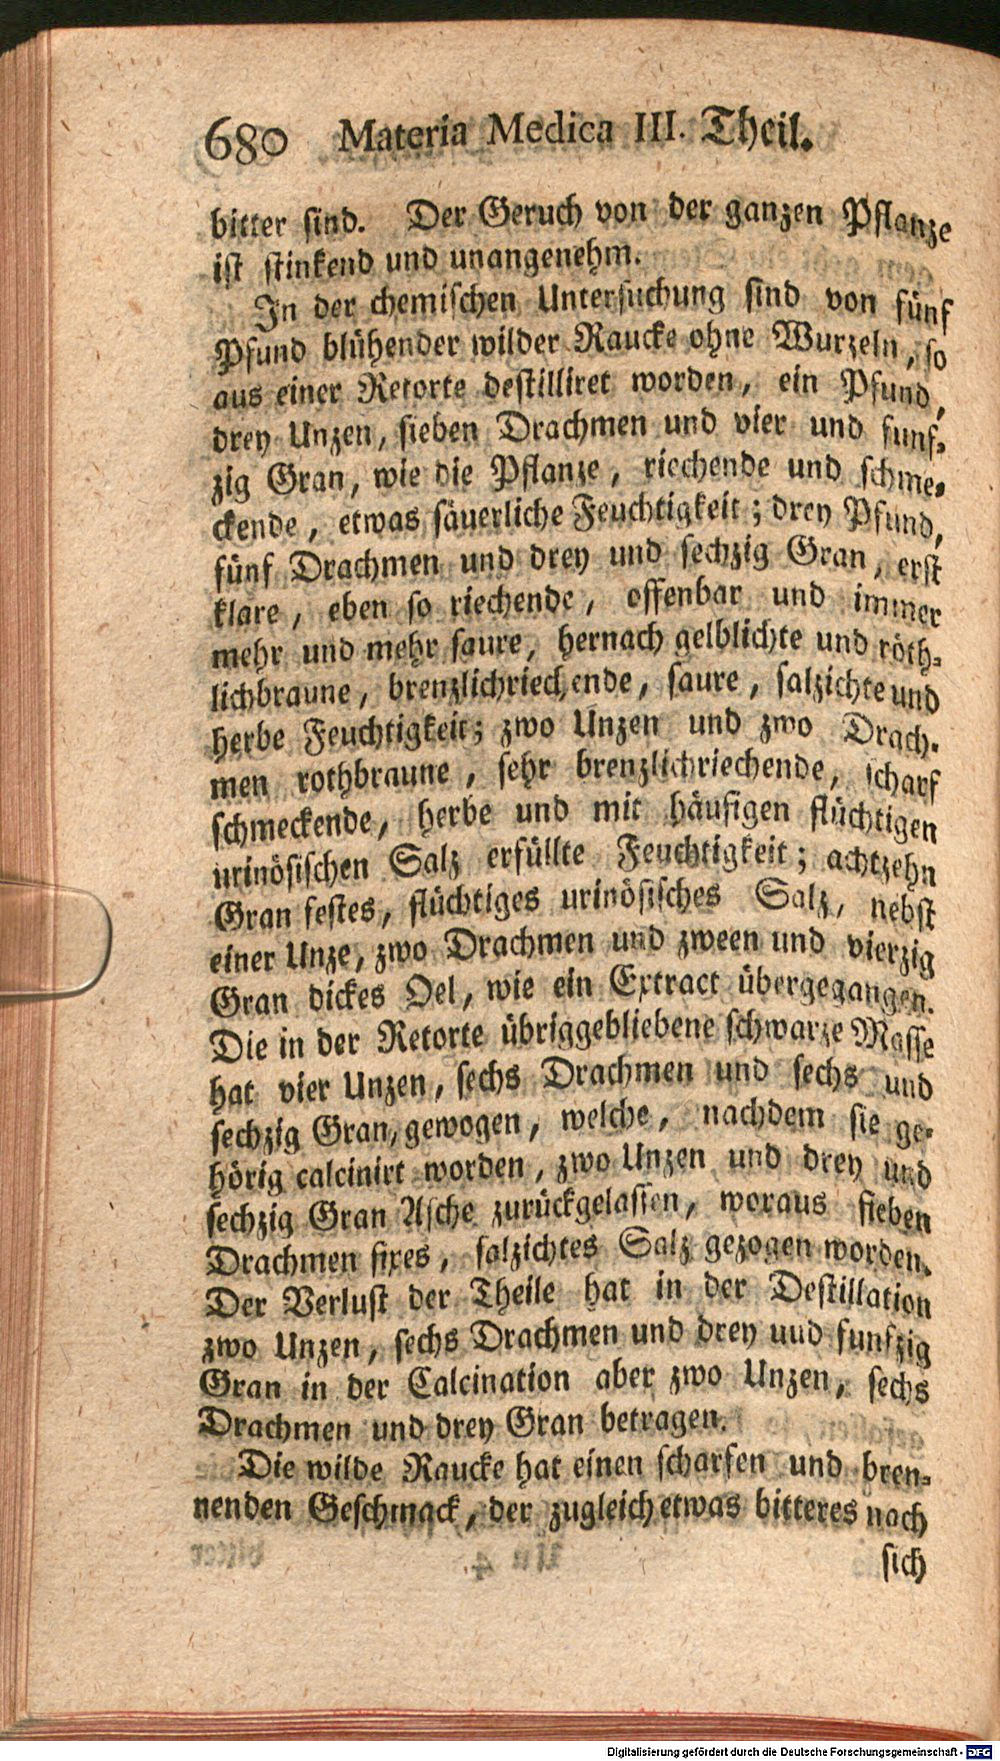 680 Materia Medica III. Theil.
bitter sind. Der Geruch von der ganzen Pflanze
ist stinkend und unangenehm.
In der chemischen Untersuchung sind von fünf
Pfund blühender wilder Raucke ohne Wurzeln, so
aus einer Retorte destilliret worden, ein Pfund,
drey Unzen, sieben Drachmen und vier und funf-
zig Gran, wie die Pflanze, riechende und schme-
ckende, etwas säuerliche Feuchtigkeit; drey Pfund,
fünf Drachmen und drey und sechzig Gran, erst
klare, eben so riechende, offenbar und immer
mehr und mehr saure, hernach gelblichte und röth-
lichbraune, brenzlichriechende, saure, salzichte und
herbe Feuchtigkeit; zwo Unzen und zwo Drach-
men rothbraune, sehr brenzlichriechende, scharf
schmeckende, herbe und mit häufigen flüchtigen
urinösischen Salz erfüllte Feuchtigkeit; achtzehn
Gran festes, flüchtiges urinösisches Salz, nebst
einer Unze, zwo Drachmen und zween und vierzig
Gran dickes Oel, wie ein Extract übergegangen.
Die in der Retorte übriggebliebene schwarze Masse
hat vier Unzen, sechs Drachmen und sechs und
sechzig Gran, gewogen, welche, nachdem sie ge-
hörig calcinirt worden, zwo Unzen und drey und
sechzig Gran Asche zurückgelassen, woraus sieben
Drachmen fixes, salzichtes Salz gezogen worden.
Der Verlust der Theile hat in der Destillation
zwo Unzen, sechs Drachmen und drey uud funfzig
Gran in der Calcination aber zwo Unzen, sechs
Drachmen und drey Gran betragen.
Die wilde Raucke hat einen scharfen und bren-
nenden Geschmack, der zugleich etwas bitteres nach
sich
Digitalisierung gefördert durch die Deutsche Forschungsgemeinschaft - DFG